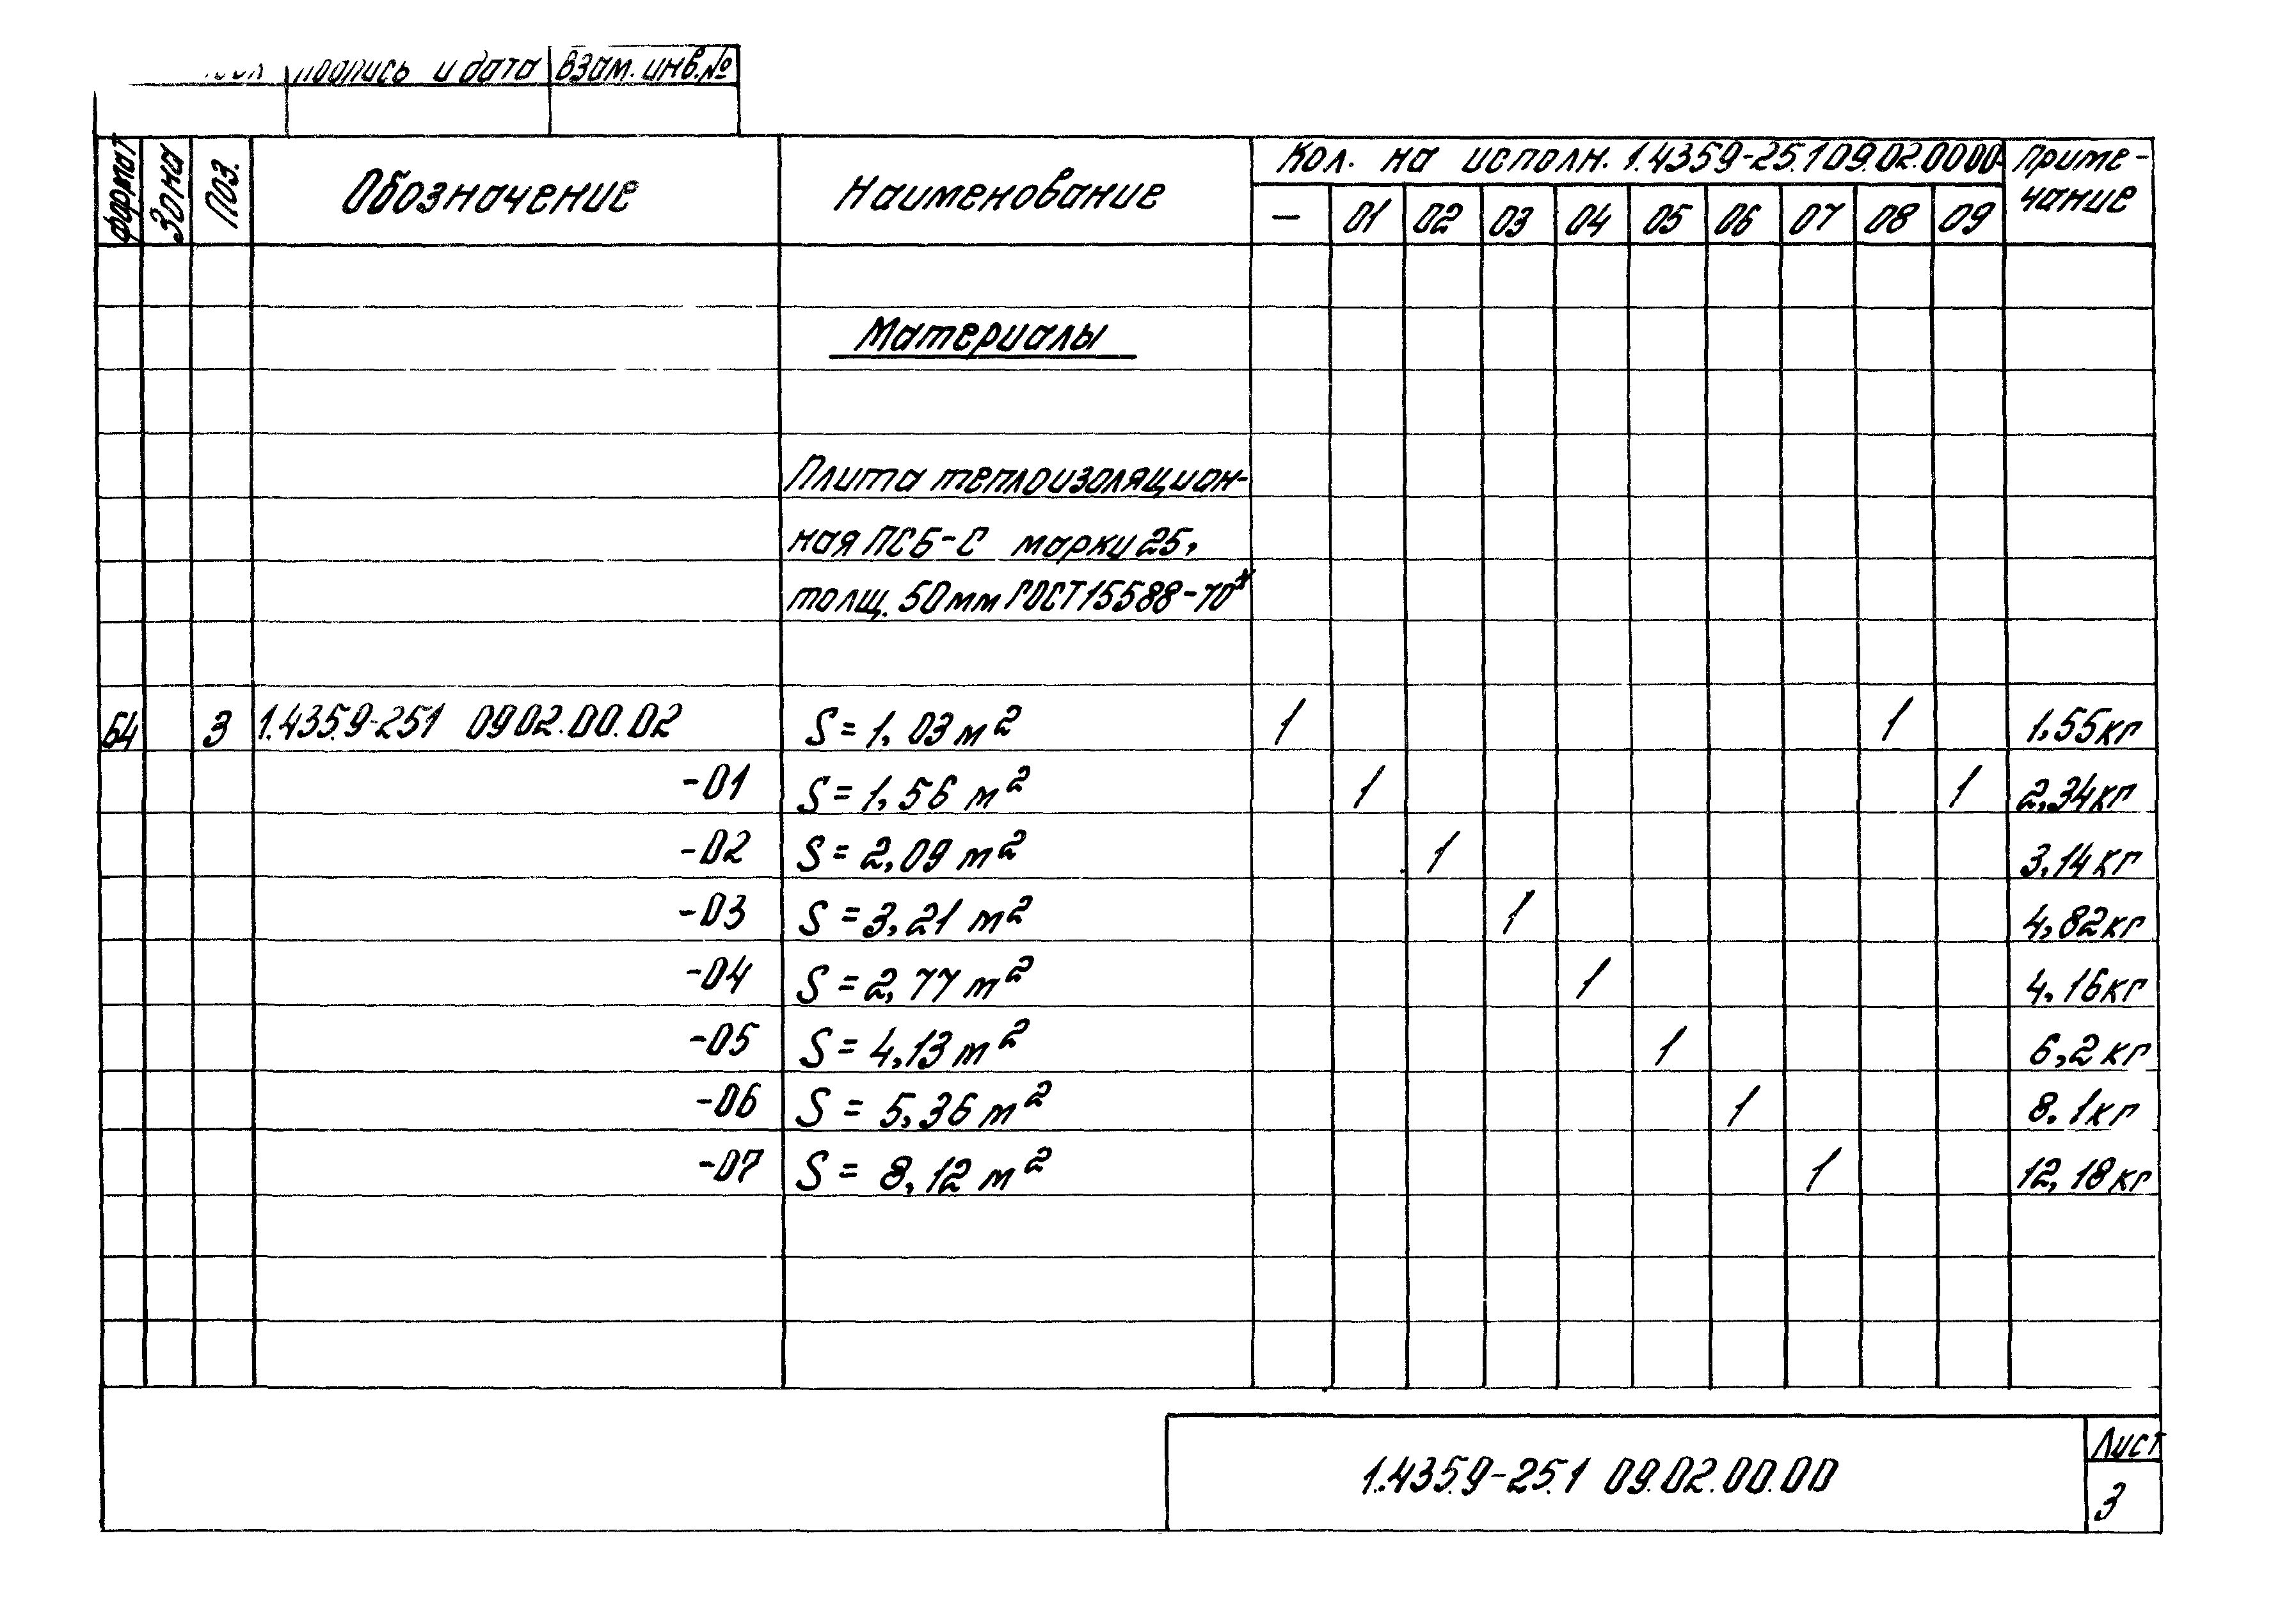 подпись и дата взам. инв. №
формат Зона Поз. Обозначение Наименование Кол. на исполн. 1.435.9-25.1 09.02.0000 Приме-
чание
– 01 02 03 04 05 06 07 08 09
Материалы
Плита теплоизоляцион-
ная ПСБ-С марки 25,
толщ. 50мм ГОСТ 15588-70*
Б4 3 1.435.9-251 0902.00.02 S = 1,03 м² 1 1 1,55кг
-01 S = 1,56 м² 1 1 2,34кг
-02 S = 2,09 м² 1 3,14кг
-03 S = 3,21 м² 1 4,82кг
-04 S = 2,77 м² 1 4,16кг
-05 S = 4,13 м² 1 6,2кг
-06 S = 5,36 м² 1 8.1кг
-07 S = 8,12 м² 1 12,18кг
1.435.9-25.1 09.02.00.00
Лист
3